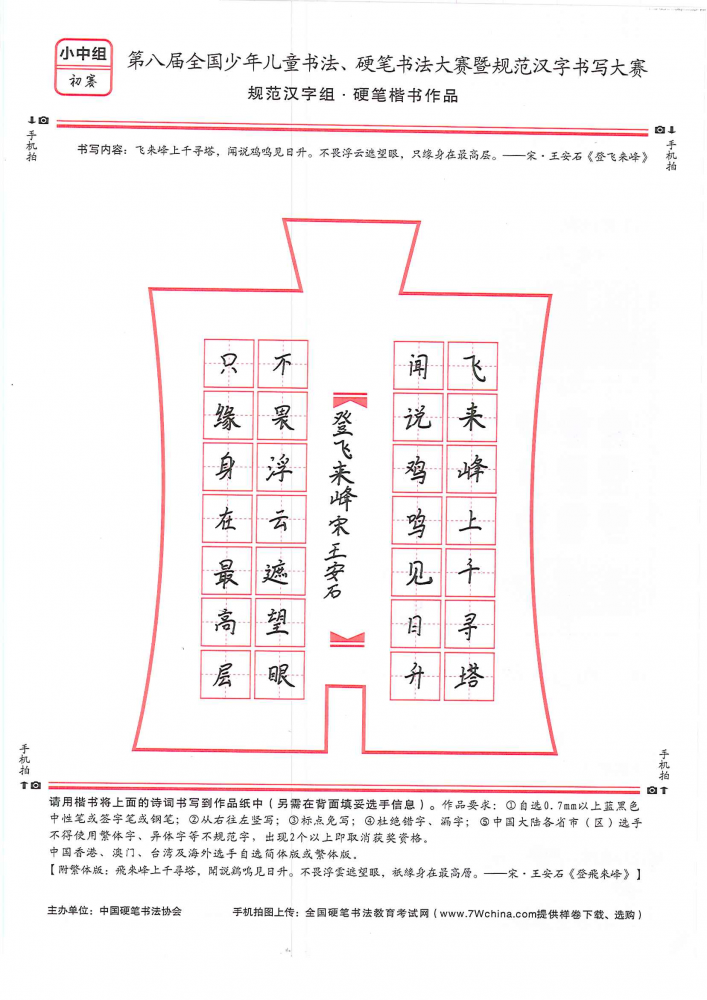 小中组
初赛
第八届全国少年儿童书法、硬笔书法大赛暨规范汉字书写大赛
规范汉字组·硬笔楷书作品
手机拍
手机拍
书写内容：飞来峰上千寻塔，闻说鸡鸣见日升。不畏浮云遮望眼，只缘身在最高层。——宋·王安石《登飞来峰》
飞来峰上千寻塔
闻说鸡鸣见日升
登飞来峰宋王安石
不畏浮云遮望眼
只缘身在最高层
手机拍
手机拍
请用楷书将上面的诗词书写到作品纸中（另需在背面填妥选手信息）。作品要求：①自选0.7mm以上蓝黑色
中性笔或签字笔或钢笔；②从右往左竖写；③标点免写；④杜绝错字、漏字；⑤中国大陆各省市（区）选手
不得使用繁体字、异体字等不规范字，出现2个以上即取消获奖资格。
中国香港、澳门、台湾及海外选手自选简体版或繁体版。
【附繁体版：飛來峰上千尋塔，聞說鷄鳴見日升。不畏浮雲遮望眼，祇緣身在最高層。——宋·王安石《登飛來峰》】
主办单位：中国硬笔书法协会
手机拍图上传：全国硬笔书法教育考试网（www.7Wchina.com提供样卷下载、选购）